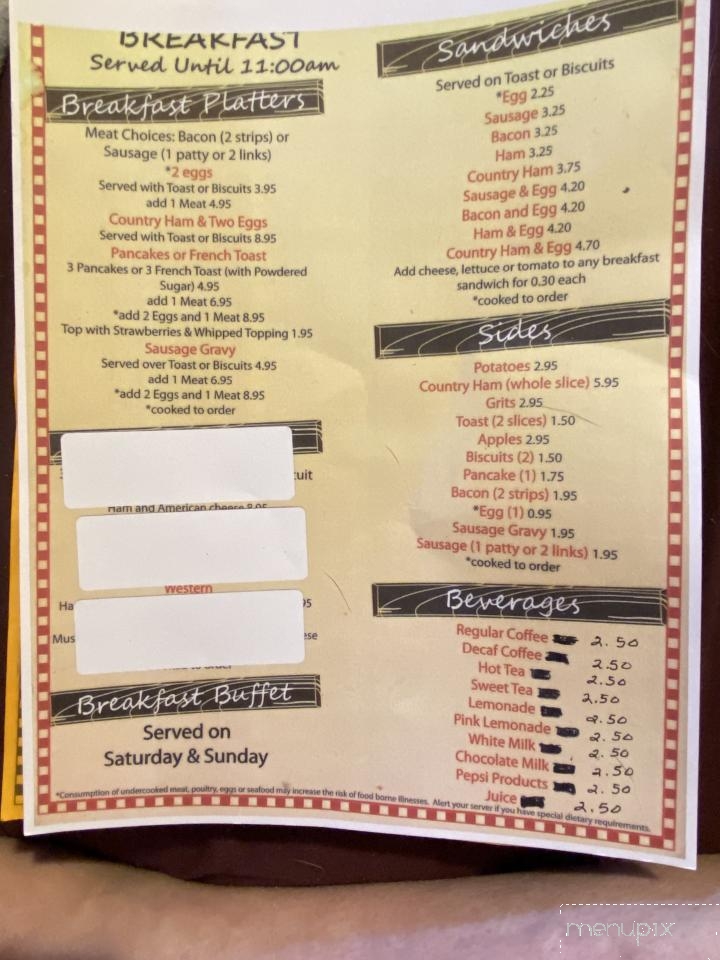 BREAKFAST
Served Until 11:00am
Breakfast Platters
Meat Choices: Bacon (2 strips) or
Sausage (1 patty or 2 links)
*2 eggs
Served with Toast or Biscuits 3.95
add 1 Meat 4.95
Country Ham & Two Eggs
Served with Toast or Biscuits 8.95
Pancakes or French Toast
3 Pancakes or 3 French Toast (with Powdered
Sugar) 4.95
add 1 Meat 6.95
*add 2 Eggs and 1 Meat 8.95
Top with Strawberries & Whipped Topping 1.95
Sausage Gravy
Served over Toast or Biscuits 4.95
add 1 Meat 6.95
*add 2 Eggs and 1 Meat 8.95
*cooked to order
Ham and American cheese 8.95
Western
Breakfast Buffet
Served on
Saturday & Sunday
Sandwiches
Served on Toast or Biscuits
*Egg 2.25
Sausage 3.25
Bacon 3.25
Ham 3.25
Country Ham 3.75
Sausage & Egg 4.20
Bacon and Egg 4.20
Ham & Egg 4.20
Country Ham & Egg 4.70
Add cheese, lettuce or tomato to any breakfast
sandwich for 0.30 each
*cooked to order
Sides
Potatoes 2.95
Country Ham (whole slice) 5.95
Grits 2.95
Toast (2 slices) 1.50
Apples 2.95
Biscuits (2) 1.50
Pancake (1) 1.75
Bacon (2 strips) 1.95
*Egg (1) 0.95
Sausage Gravy 1.95
Sausage (1 patty or 2 links) 1.95
*cooked to order
Beverages
Regular Coffee 2.50
Decaf Coffee 2.50
Hot Tea 2.50
Sweet Tea 2.50
Lemonade 2.50
Pink Lemonade 2.50
White Milk 2.50
Chocolate Milk 2.50
Pepsi Products 2.50
Juice 2.50
*Consumption of undercooked meat, poultry, eggs or seafood may increase the risk of food borne illnesses. Alert your server if you have special dietary requirements.
menupix